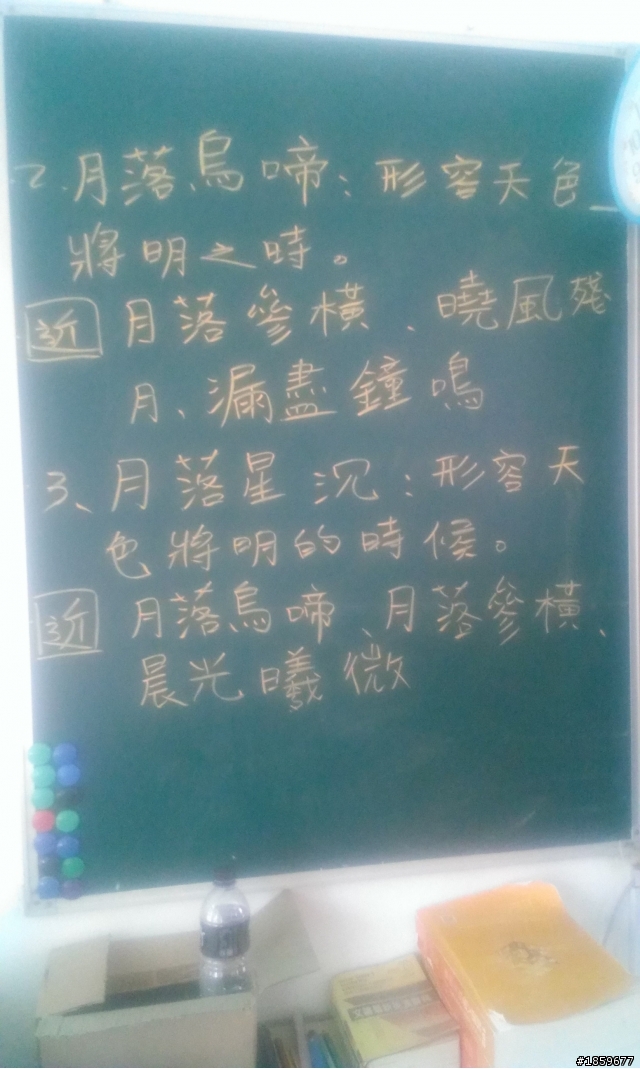 2.月落烏啼:形容天色
將明之時。
近 月落參橫、曉風殘
月、漏盡鐘鳴
3、月落星沉:形容天
色將明的時候。
近 月落烏啼、月落參橫、
晨光曦微
#1859677